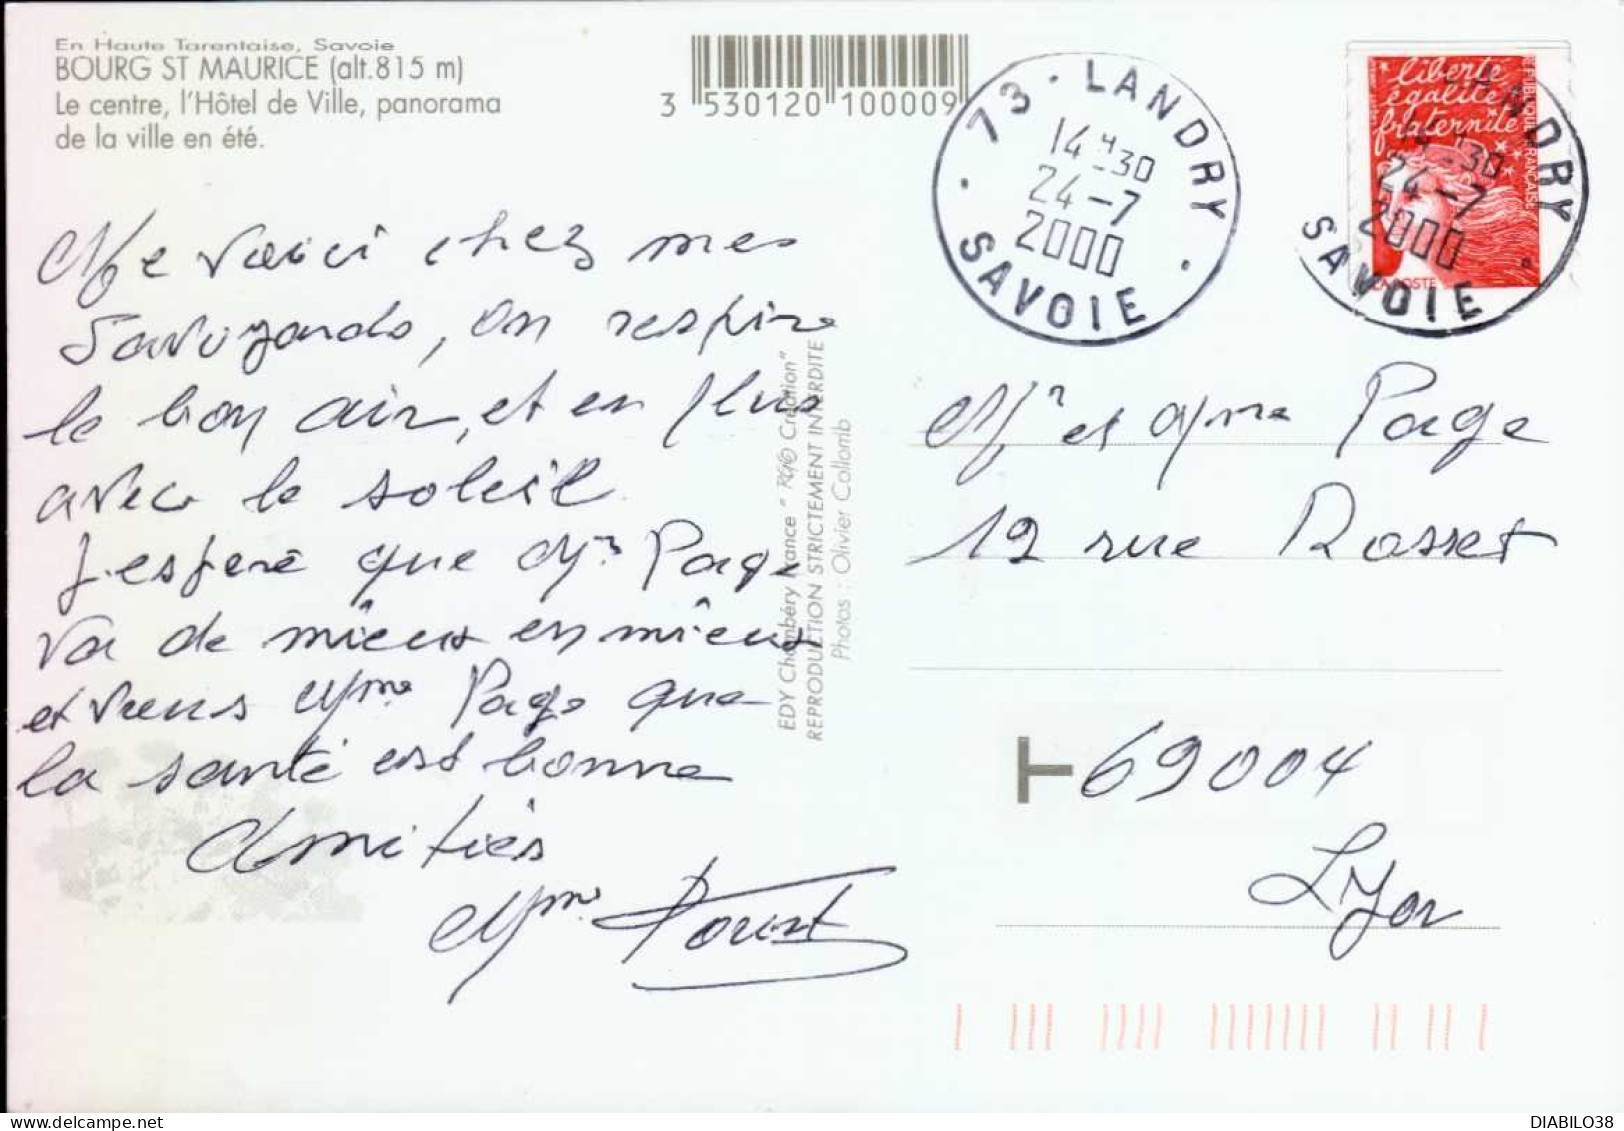 En Haute Tarentaise, Savoie
BOURG ST MAURICE (alt.815 m)
Le centre, l'Hôtel de Ville, panorama
de la ville en été.
3 530120 100009
73 · LANDRY
14 H 30
24-7
2000
· SAVOIE ·
liberté
égalité
fraternité
RÉPUBLIQUE FRANÇAISE
LA POSTE
LANDRY
14 H 30
24-7
2000
SAVOIE
Me voici chez mes
Savoyards, on respire
le bon air, et en plus
avec le soleil
J'espère que Mr Page
va de mieux en mieux
et vous Mme Page que
la santé est bonne
Amitiés
Mme
EDY Chambéry France
REPRODUCTION STRICTEMENT INTERDITE
Photos : Olivier Collomb
Mr et Mme Page
12 rue Rosset
T 69004
Lyon
DIABILO38